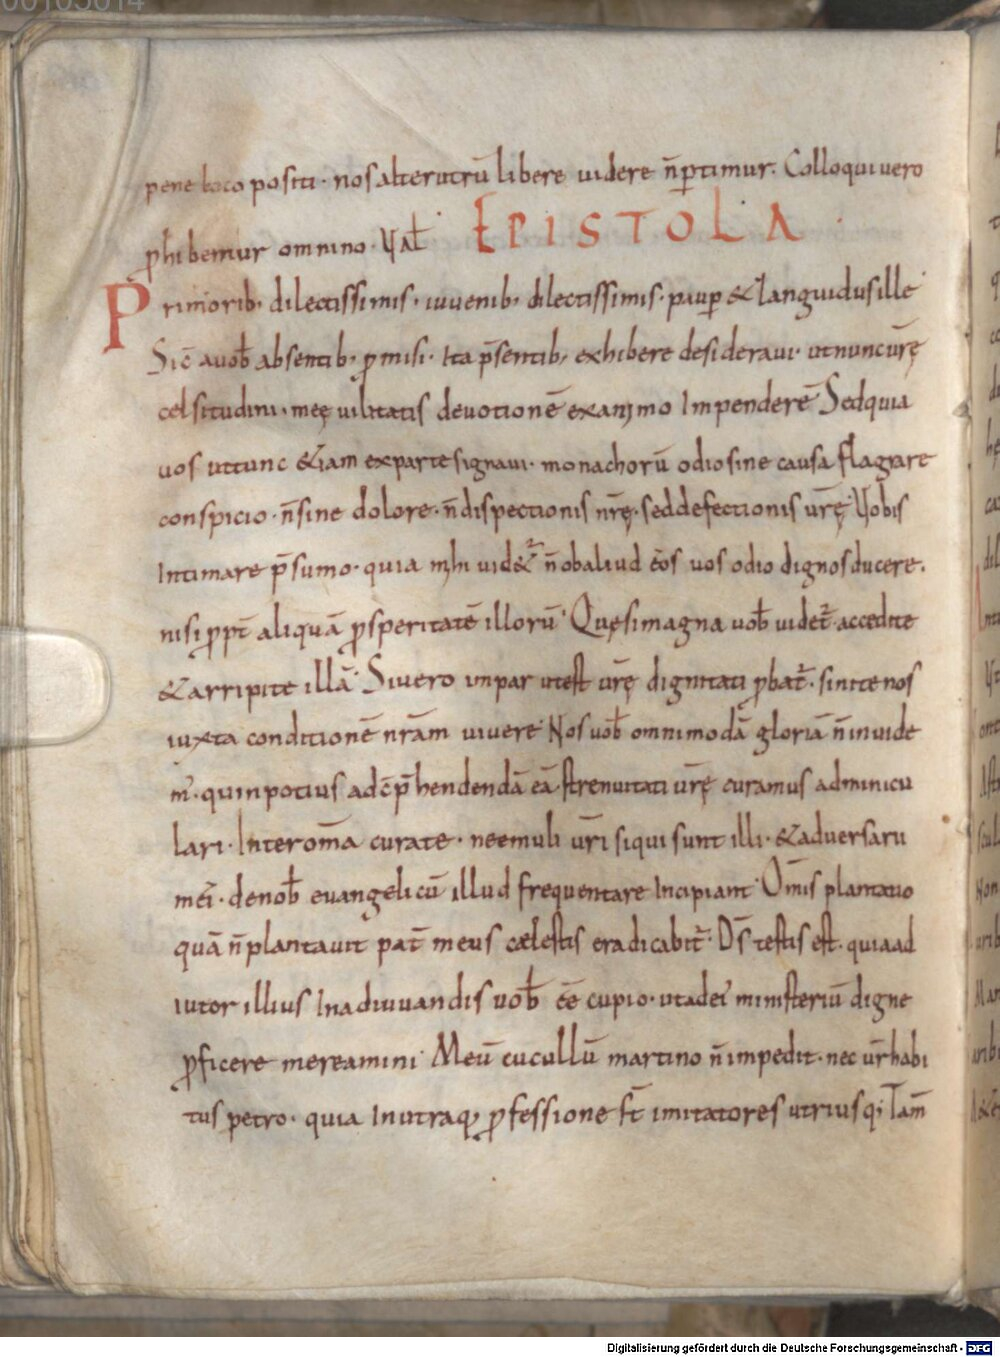 00105014
pene loco positi · nos alterutrū libere uidere n̄ ꝑtimur. Colloqui uero
ꝓhibemur omnino · Ual̄ EPISTOLA
Primorib; dilectissimis · iuuenib; dilectissimis · paup̱ & languidus ille
Sic̄ a uob̄ absentib; ꝓmisi · Ita p̄sentib; exhibere desideraui · ut nunc ur̄ę
celsitudini · meę uilitatis deuotionē ex animo Impenderē Sed quia
uos ut tunc &iam ex parte signaui · monachorū odio sine causa flagrare
conspicio · n̄ sine dolore · n̄ dispectionis nr̄ę · sed defectionis ur̄ę · Uobis
Intimare p̄sumo · quia mihi uid&̃ n̄ ob aliud ēos uos odio dignos ducere ·
nisi ꝓpt̄ aliquā ꝓsperitatē illorū · Quę si magna uob̄ uidet̄ · accedite
& arripite illā · Si uero impar utest ur̄ę dignitati ꝓbat̄ · sinite nos
iuxta conditionē nr̄am uiuere · Nos uob̄ omnimodā gloriā n̄ inuide
m̄ · quin potius ad c̄p̄hendendā eā strenuitati ur̄ę curamus adminicu
lari · Interom̄a curate · ne emuli ur̄i si qui sunt illi · & aduersarii
mei · de nob̄ euangelicū illud frequentare Incipiant · Om̄is plantatio
quā n̄ plantauit pat̄ meus cælestis eradicabit̄ · Ds̄ testis est · quia ad
iutor illius In adiuuandis uob̄ ēē cupio · ut a dei ministeriū digne
ꝓficere mereamini · Meū cucullū martino n̄ impedit · nec ur̄ habi
tus petro · quia In utraq; ꝓfessione st̄ imitatores utriusq; Tam̄
Digitalisierung gefördert durch die Deutsche Forschungsgemeinschaft - DFG